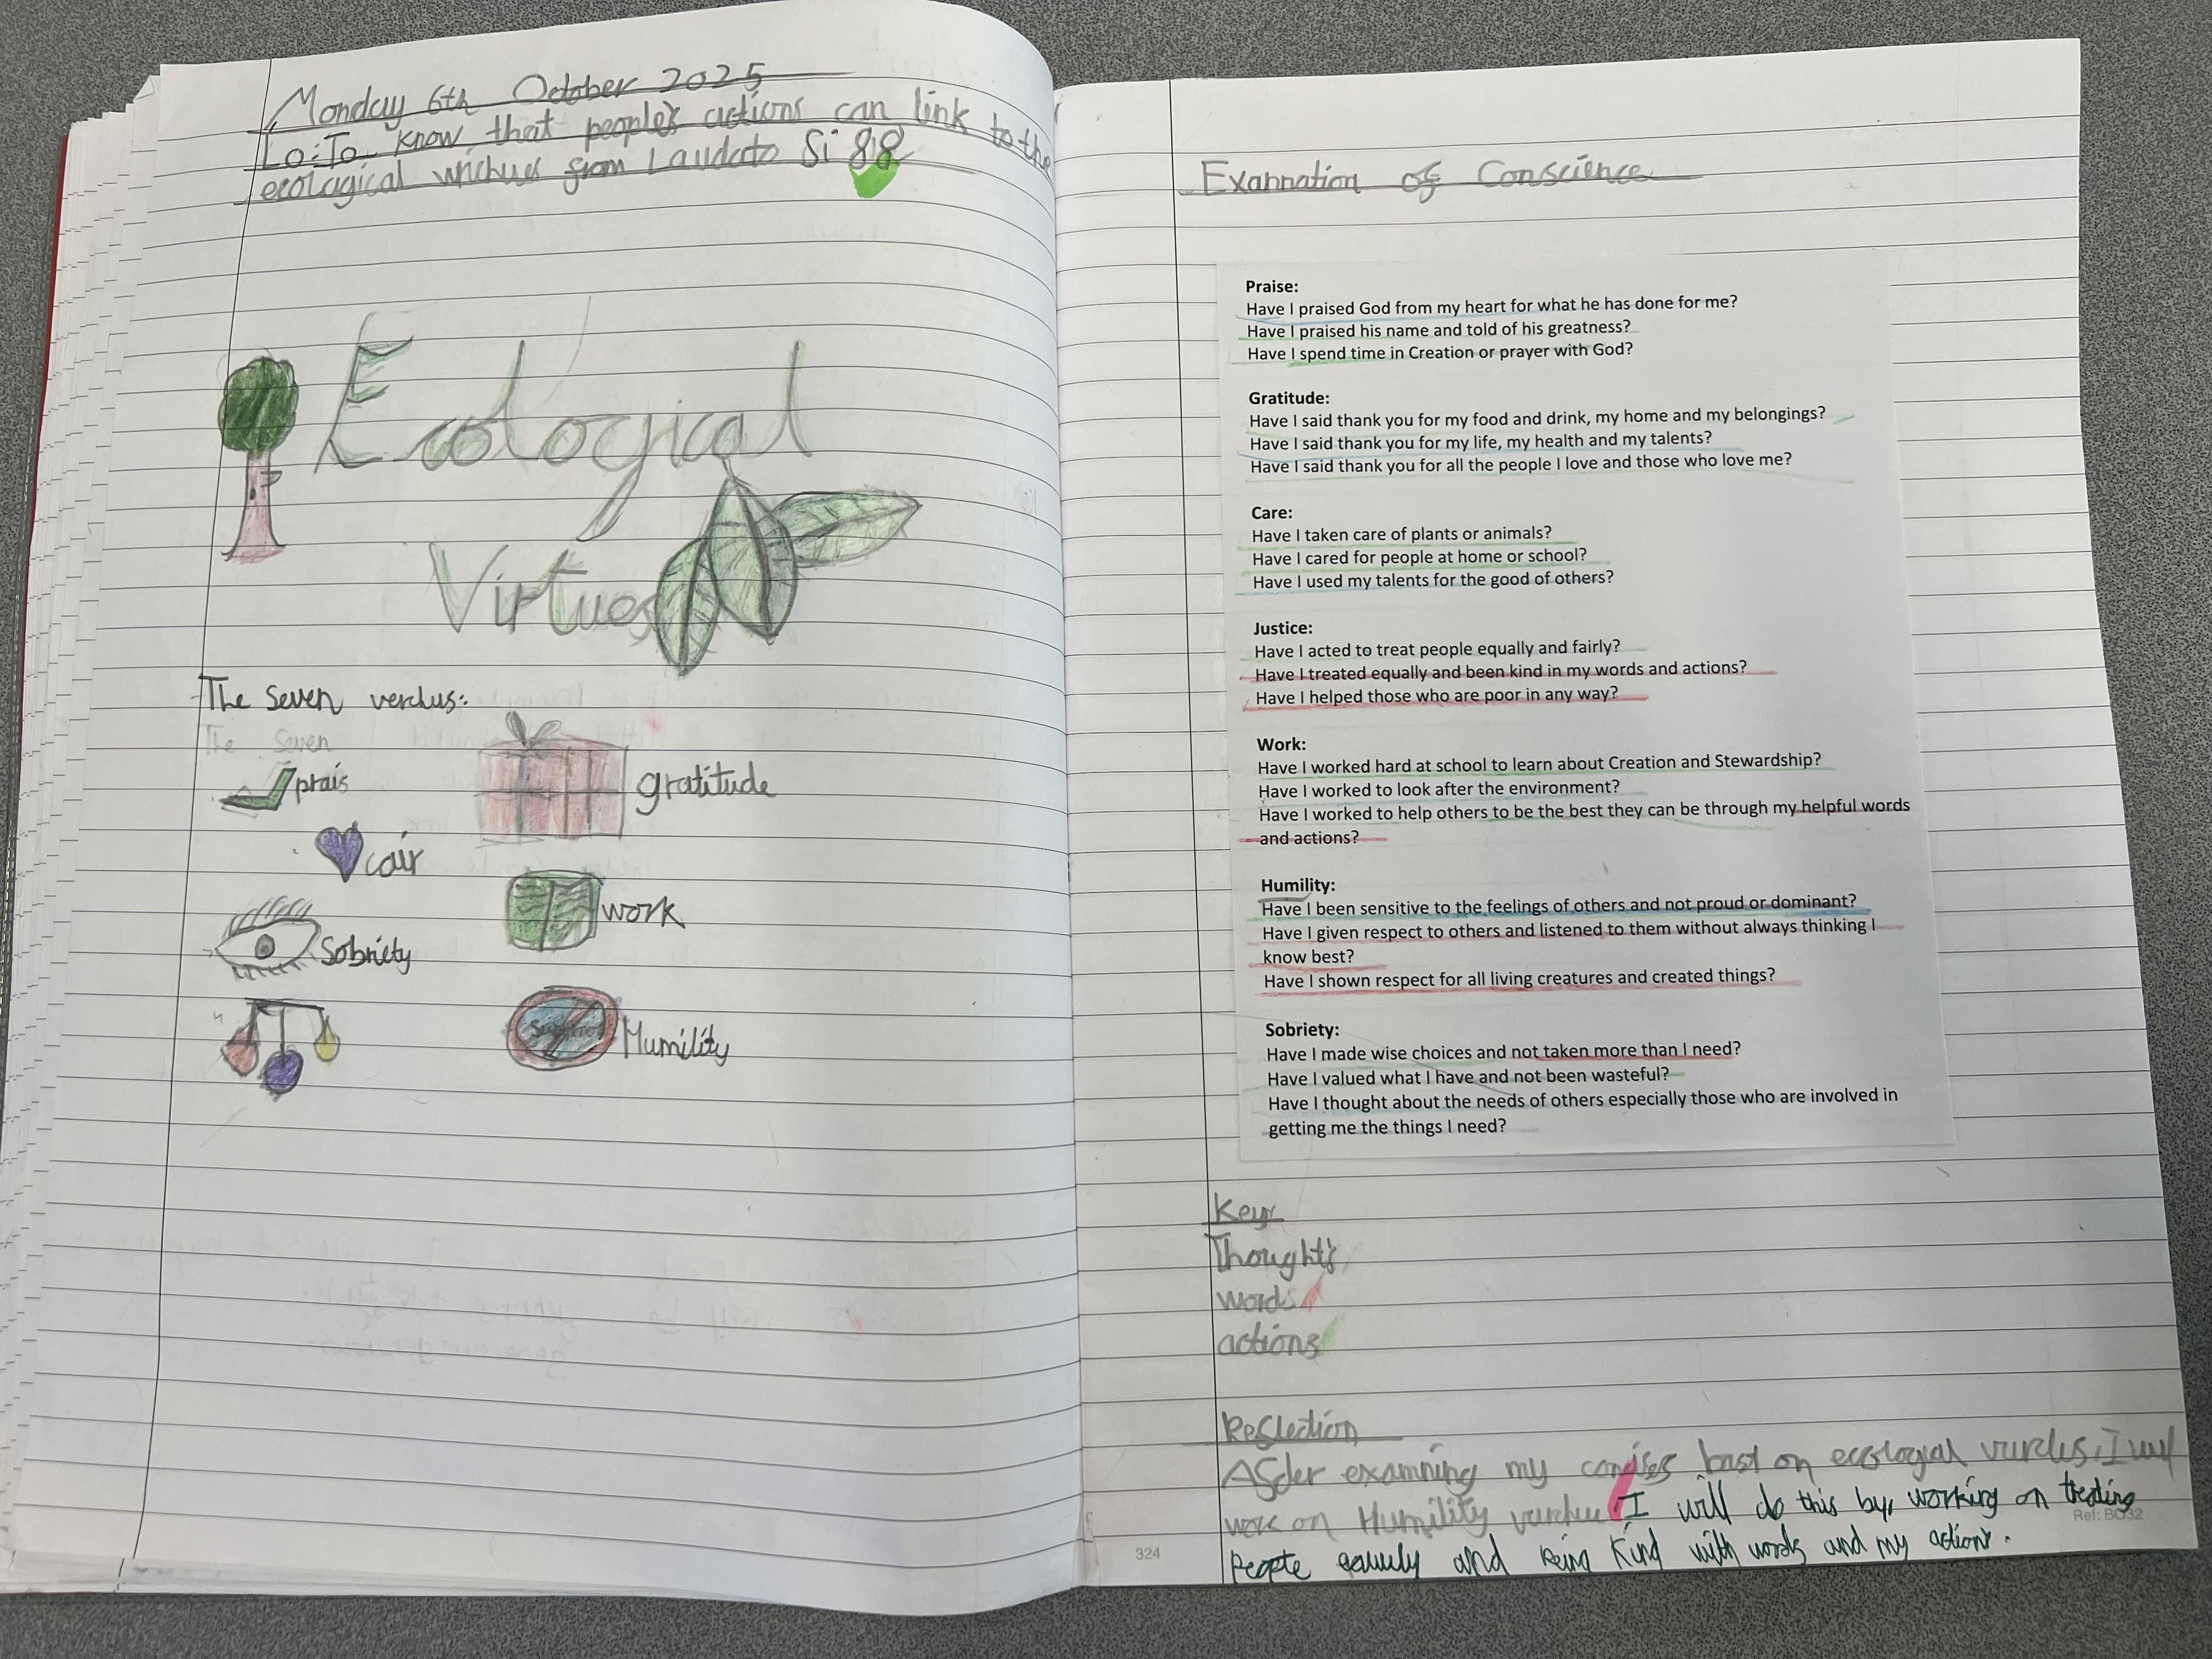 Monday 6th October 2025
Lo: To know that people's actions can link to the
ecological virchues from Laudato Si 88
Ecological
Virtues
The Seven verchus:
The Seven
prais
gratitude
cair
work
Sobriety
Humility
Exannation of Conscience
Praise:
Have I praised God from my heart for what he has done for me?
Have I praised his name and told of his greatness?
Have I spend time in Creation or prayer with God?
Gratitude:
Have I said thank you for my food and drink, my home and my belongings?
Have I said thank you for my life, my health and my talents?
Have I said thank you for all the people I love and those who love me?
Care:
Have I taken care of plants or animals?
Have I cared for people at home or school?
Have I used my talents for the good of others?
Justice:
Have I acted to treat people equally and fairly?
Have I treated equally and been kind in my words and actions?
Have I helped those who are poor in any way?
Work:
Have I worked hard at school to learn about Creation and Stewardship?
Have I worked to look after the environment?
Have I worked to help others to be the best they can be through my helpful words
and actions?
Humility:
Have I been sensitive to the feelings of others and not proud or dominant?
Have I given respect to others and listened to them without always thinking I
know best?
Have I shown respect for all living creatures and created things?
Sobriety:
Have I made wise choices and not taken more than I need?
Have I valued what I have and not been wasteful?
Have I thought about the needs of others especially those who are involved in
getting me the things I need?
Key
Thoughts
words
actions
Reflection
After examning my bast on I will
work on Humility I will do this by, working on treating
People and being kind with words and my actions.
324
Ref: BO32